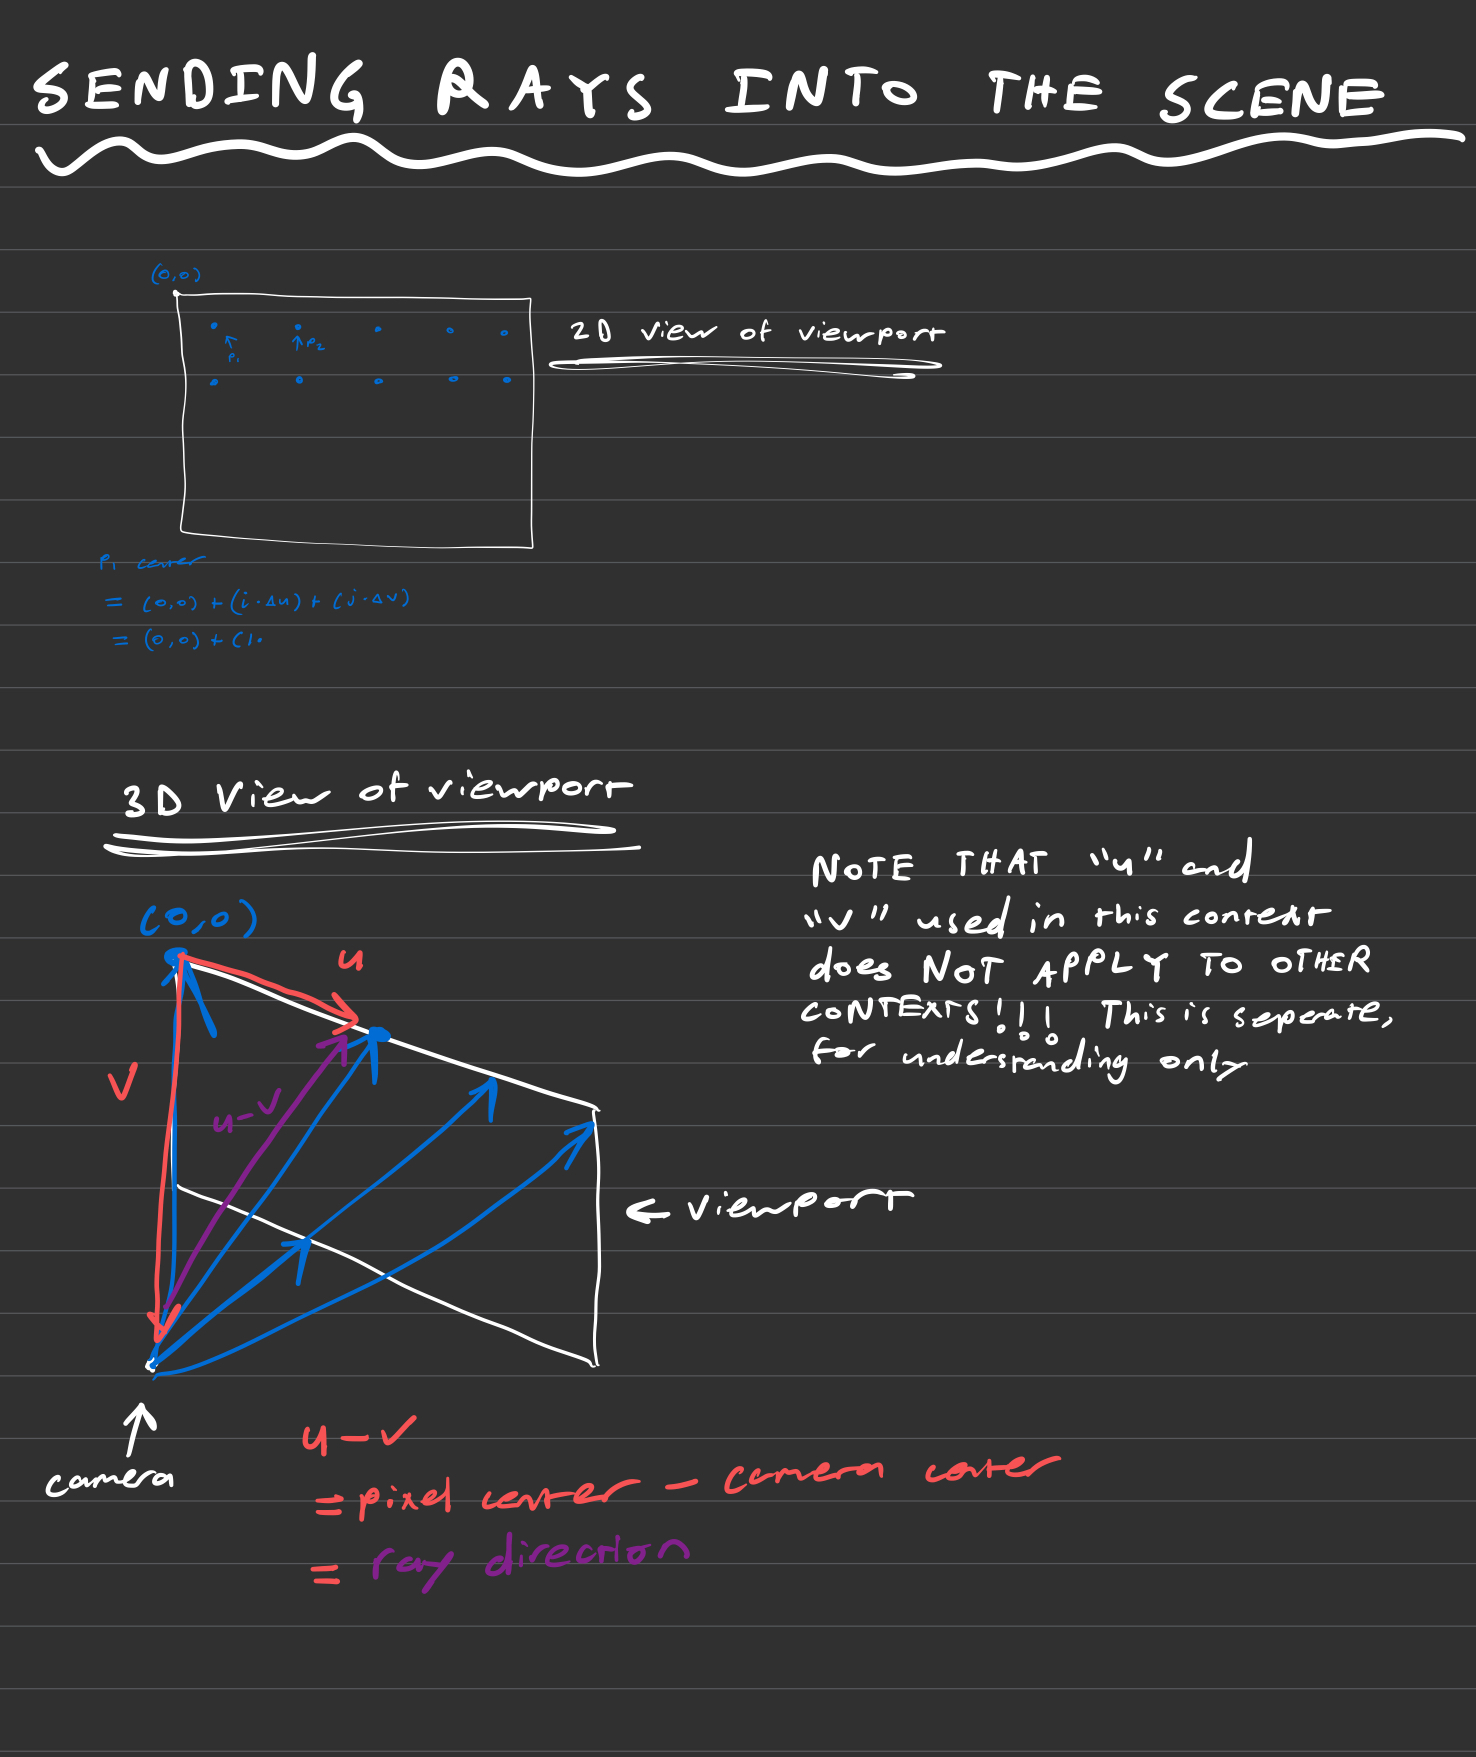 SENDING RAYS INTO THE SCENE
(0,0)
2D view of viewport
P1
P2
P1 center
= (0,0) + (i · Δu) + (j · Δv)
= (0,0) + (1·
3D View of viewport
NOTE THAT "u" and
"v" used in this context
does NOT APPLY TO OTHER
CONTEXTS!!! This is seperate,
for understanding only
(0,0)
u
v
u-v
← viewport
camera
u-v
= pixel center - camera center
= ray direction